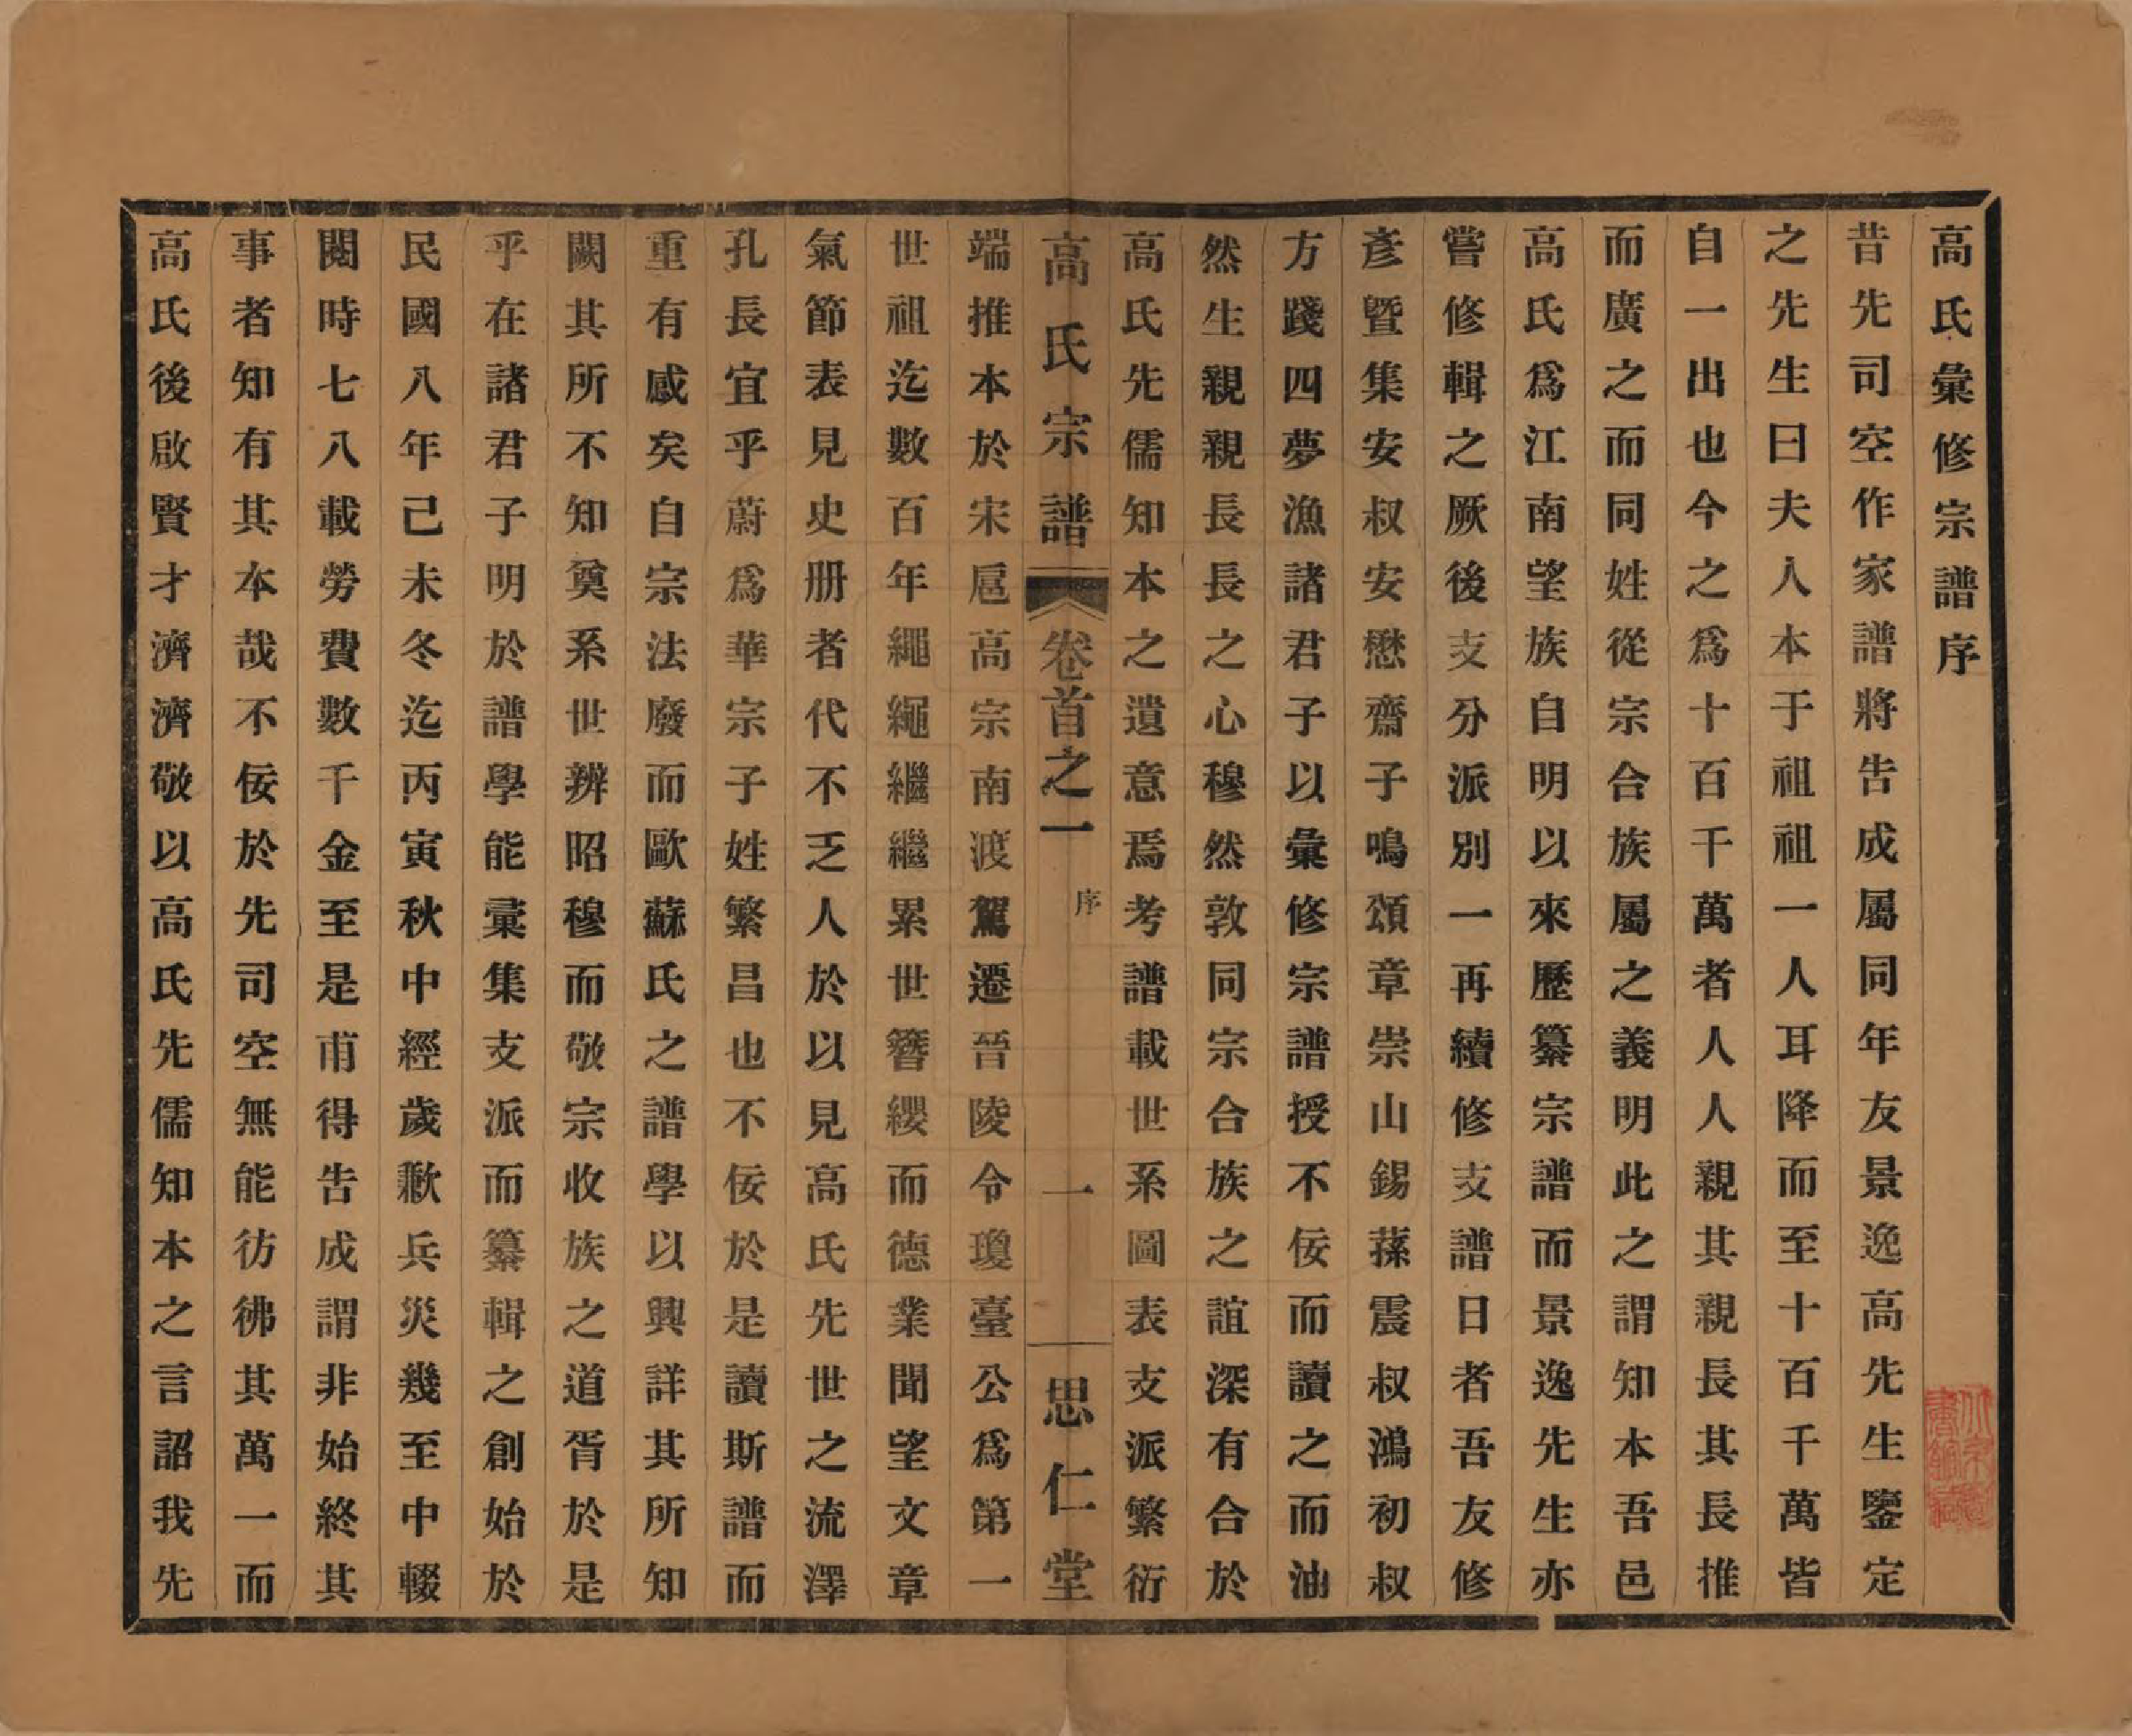 高氏彙修宗譜序
昔先司空作家譜將告成屬同年友景逸高先生鑒定
之先生曰夫人本于祖祖一人耳降而至十百千萬皆
自一出也今之爲十百千萬者人人親其親長其長推
而廣之而同姓從宗合族屬之義明此之謂知本吾邑
高氏爲江南望族自明以來歷纂宗譜而景逸先生亦
嘗修輯之厥後支分派別一再續修支譜日者吾友修
彥暨集安叔安懋齋子鳴頌章崇山錫蓀震叔鴻初叔
方踐四夢漁諸君子以彙修宗譜授不佞而讀之而油
然生親親長長之心穆然敦同宗合族之誼深有合於
高氏先儒知本之遺意焉考譜載世系圖表支派繁衍
高氏宗譜 卷首之一 序 一 思仁堂
端推本於宋扈高宗南渡駕遷晉陵令瓊臺公爲第一
世祖迄數百年繩繩繼繼累世簪纓而德業聞望文章
氣節表見史册者代不乏人於以見高氏先世之流澤
孔長宜乎蔚爲華宗子姓繁昌也不佞於是讀斯譜而
重有感矣自宗法廢而歐蘇氏之譜學以興詳其所知
闕其所不知奠系世辨昭穆而敬宗收族之道胥於是
乎在諸君子明於譜學能彙集支派而纂輯之創始於
民國八年己未冬迄丙寅秋中經歲歉兵災幾至中輟
閱時七八載勞費數千金至是甫得告成謂非始終其
事者知有其本哉不佞於先司空無能彷彿其萬一而
高氏後啟賢才濟濟敬以高氏先儒知本之言詔我先